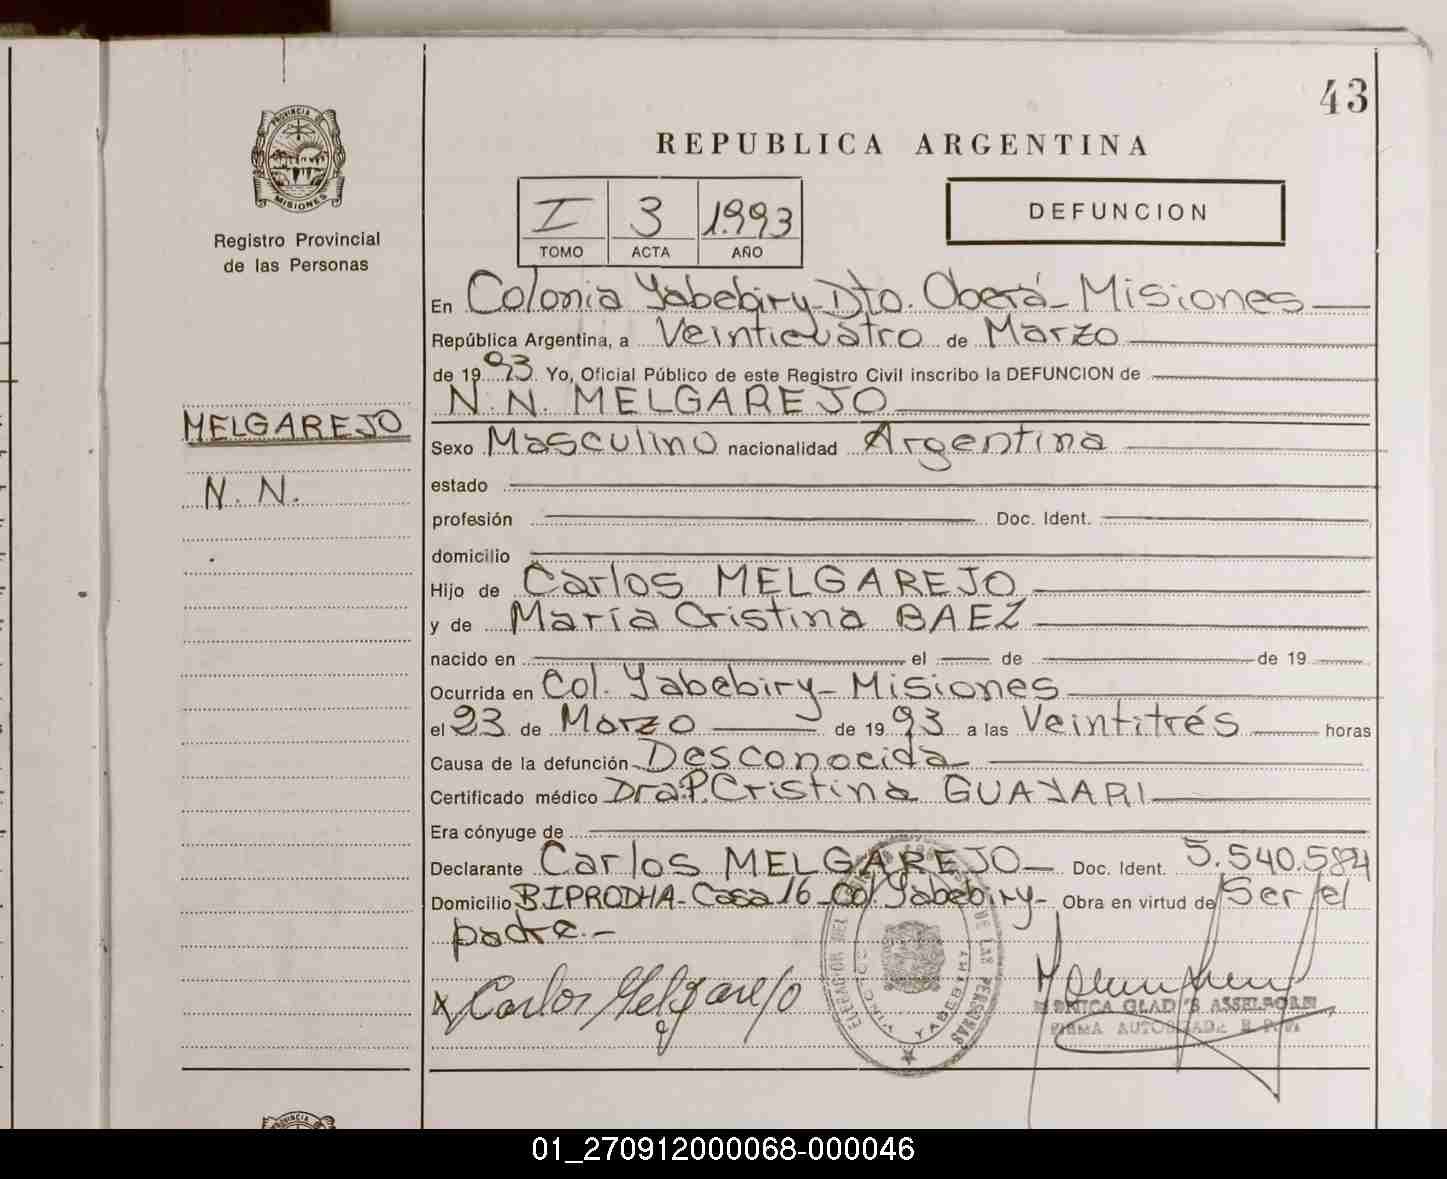 43
REPUBLICA ARGENTINA
PROVINCIA DE
MISIONES
Registro Provincial
de las Personas
I 3 1.993
TOMO ACTA AÑO
DEFUNCION
En Colonia Yabebiry - Dto. Oberá - Misiones
República Argentina, a Veinticuatro de Marzo
de 1993. Yo, Oficial Público de este Registro Civil inscribo la DEFUNCION de
N.N. MELGAREJO
MELGAREJO
N. N.
Sexo Masculino nacionalidad Argentina
estado
profesión Doc. Ident.
domicilio
Hijo de Carlos MELGAREJO
y de María Cristina BAEZ
nacido en el de de 19
Ocurrida en Col. Yabebiry - Misiones
el 23 de Marzo de 1993 a las Veintitrés horas
Causa de la defunción Desconocida
Certificado médico Dra. P. Cristina GUAYARI
Era cónyuge de
Declarante Carlos MELGAREJO - Doc. Ident. 5.540.584
Domicilio BIPRODHA - Casa 16 - Col. Yabebiry - Obra en virtud de Ser el
padre.-
Carlos Melgarejo
DE LAS PERSONAS
YABEBIRY
FIRMA AUTORIZADA
PROVINCIA DE
01_270912000068-000046